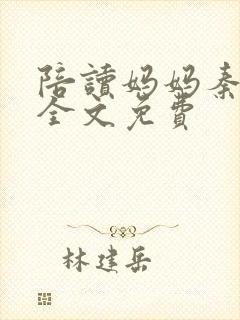 陪讀媽媽秦
全文免費
林建岳